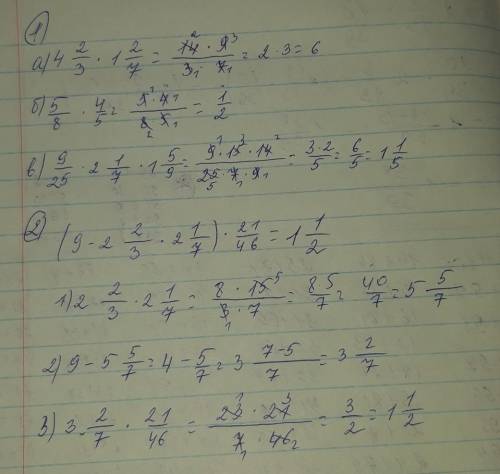 1)
а) 4 2/3 · 1 2/7 = (14 · 9)/(3 · 7) = 2 · 3 = 6
б) 5/8 · 4/5 = (5 · 4)/(8 · 5) = 1/2
в) 9/25 · 2 1/7 · 1 5/9 = (9 · 15 · 14)/(25 · 7 · 9) = (3 · 2)/5 = 6/5 = 1 1/5
2) (9 - 2 2/3 · 2 1/7) · 21/46 = 1 1/2
1) 2 2/3 · 2 1/7 = (8 · 15)/(3 · 7) = (8 · 5)/7 = 40/7 = 5 5/7
2) 9 - 5 5/7 = 4 - 5/7 = 3 (7 - 5)/7 = 3 2/7
3) 3 2/7 · 21/46 = (23 · 21)/(7 · 46) = 3/2 = 1 1/2